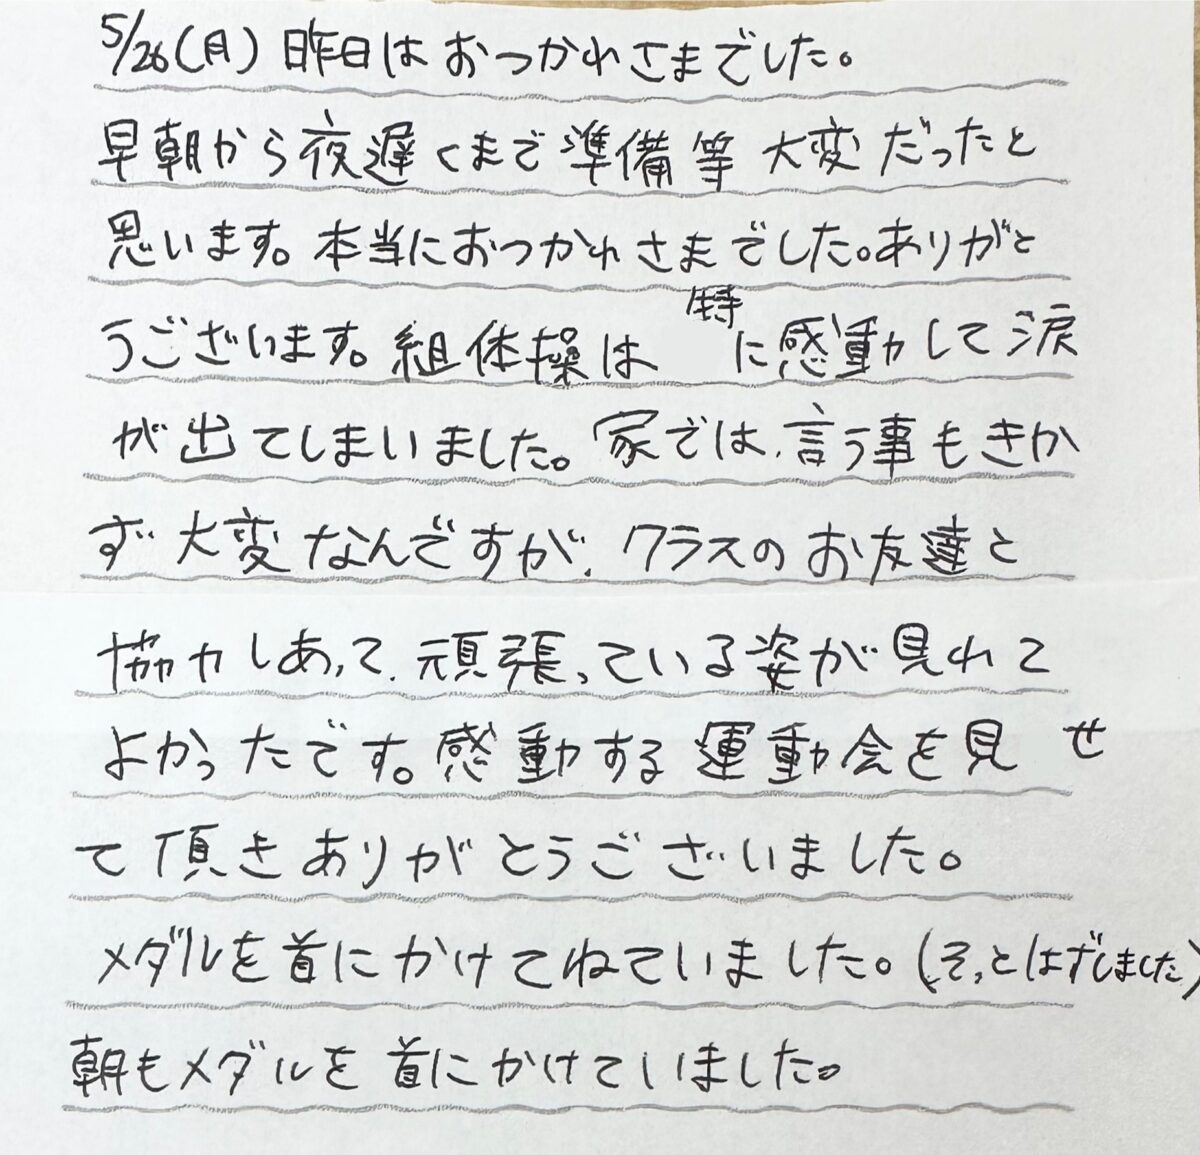 5/26(月) 昨日はおつかれさまでした。
早朝から夜遅くまで準備等 大変だったと
思います。本当におつかれさまでした。ありがと
うございます。組体操は 特に感動して涙
が出てしまいました。家では、言う事もきか
ず 大変なんですが、クラスのお友達と
協力しあって、頑張っている姿が見れて
よかったです。感動する運動会を見せ
て頂きありがとうございました。
メダルを首にかけてねていました。(そっとはずしました)
朝もメダルを首にかけていました。